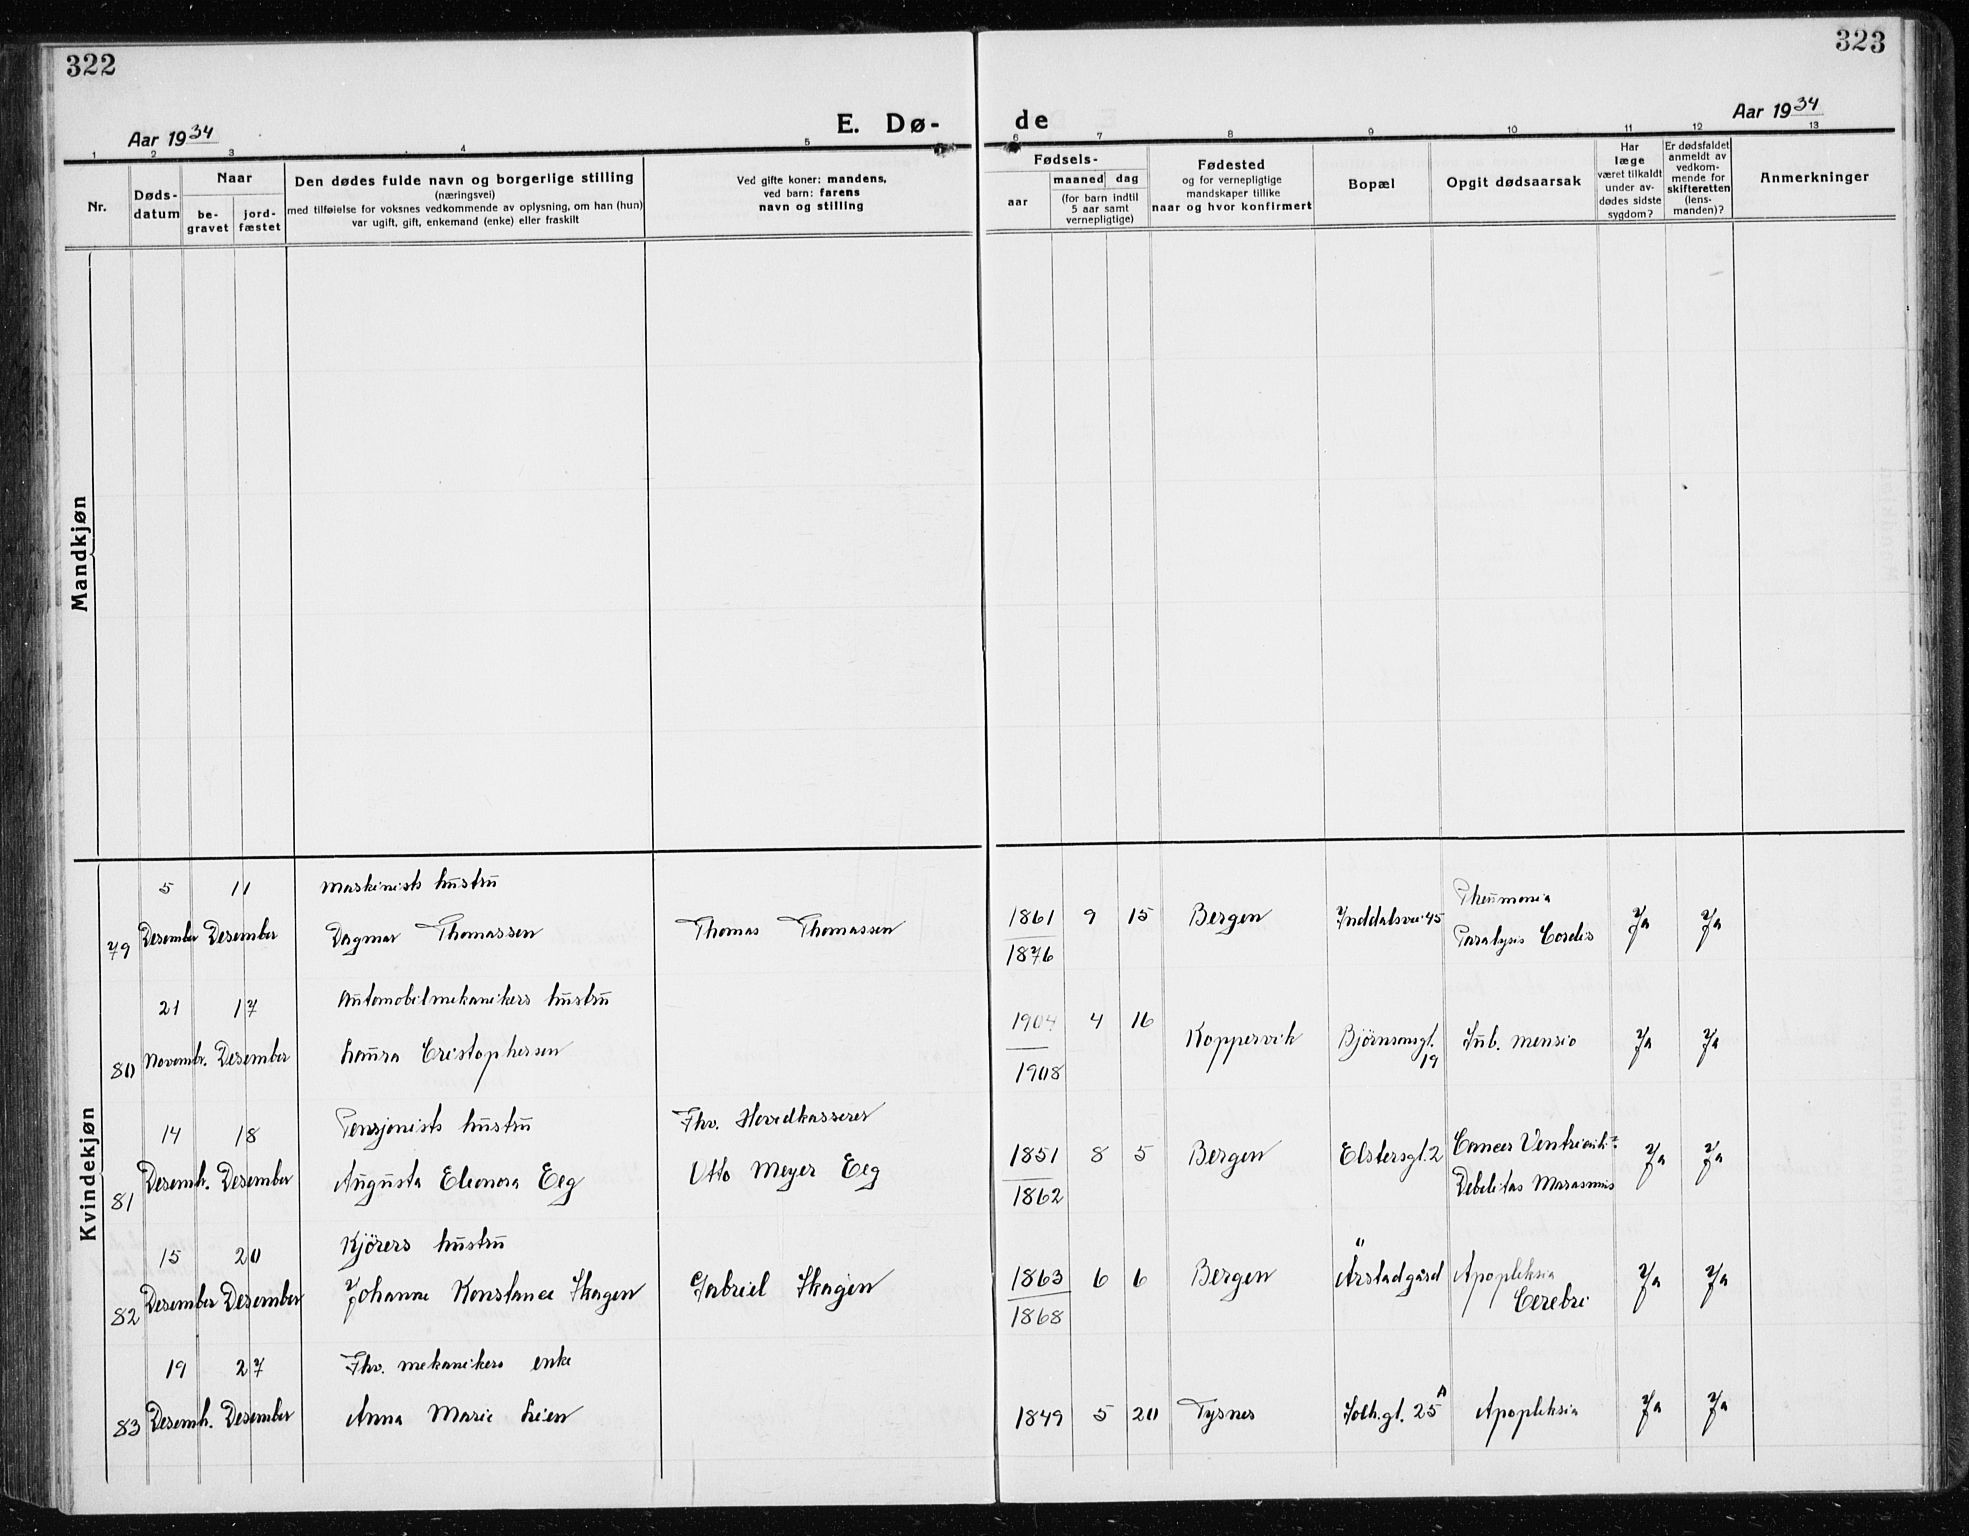 322
323
Aar 1934
E. Dø-
de
Aar 1934
1 2 3 4 5 6 7 8 9 10 11 12 13
Nr.
Døds-
datum
Naar
be-
gravet
jord-
fæstet
Den dødes fulde navn og borgerlige stilling
(næringsvei)
med tilføielse for voksnes vedkommende av oplysning, om han (hun)
var ugift, gift, enkemand (enke) eller fraskilt
Ved gifte koner: mandens,
ved barn: farens
navn og stilling
Fødsels-
aar
maaned dag
(for barn indtil
5 aar samt
vernepligtige)
Fødested
og for vernepligtige
mandskaper tillike
naar og hvor konfirmert
Bopæl
Opgit dødsaarsak
Har
læge
været tilkaldt
under av-
dødes sidste
sygdom?
Er dødsfaldet
anmeldt av
vedkom-
mende for
skifteretten
(lens-
manden)?
Anmerkninger
Mandkjøn
Kvindekjøn
5 11 Maskinists hustru
Pneumonia
79 Desember Desember Dagmar Thomassen Thomas Thomassen 1861 9 15 Bergen Inddalsvei 45 Paralysis Cordis Ja Ja
1876
21 17 Automobilmekanikers hustru
1904 4 16
80 Novembr. Desember Laura Cristophersen Koppervik Bjørnsonsgt. 19 Sub. mensio Ja Ja
1908
14 18 Pensjonists hustru Fhv. Hovedkasserer
81 Desemb. Desember Augusta Eleonora Eeg Otto Meyer Eeg 1851 8 5 Bergen Elstersgt. 2 Cancer Ja Ja
1862 Debilitas Marasmus
15 20 Kjörers hustru
82 Desember Desember Johanne Konstance Skagen Gabriel Skagen 1863 6 6 Bergen Årstadgård Apopleksia Ja Ja
Cerebri
1868
19 27 Fhv. mekanikers enke
83 Desemb. Desember Anna Marie Leien 1849 5 20 Tysnes Solh.gt. 25 A Apopleksia Ja Ja